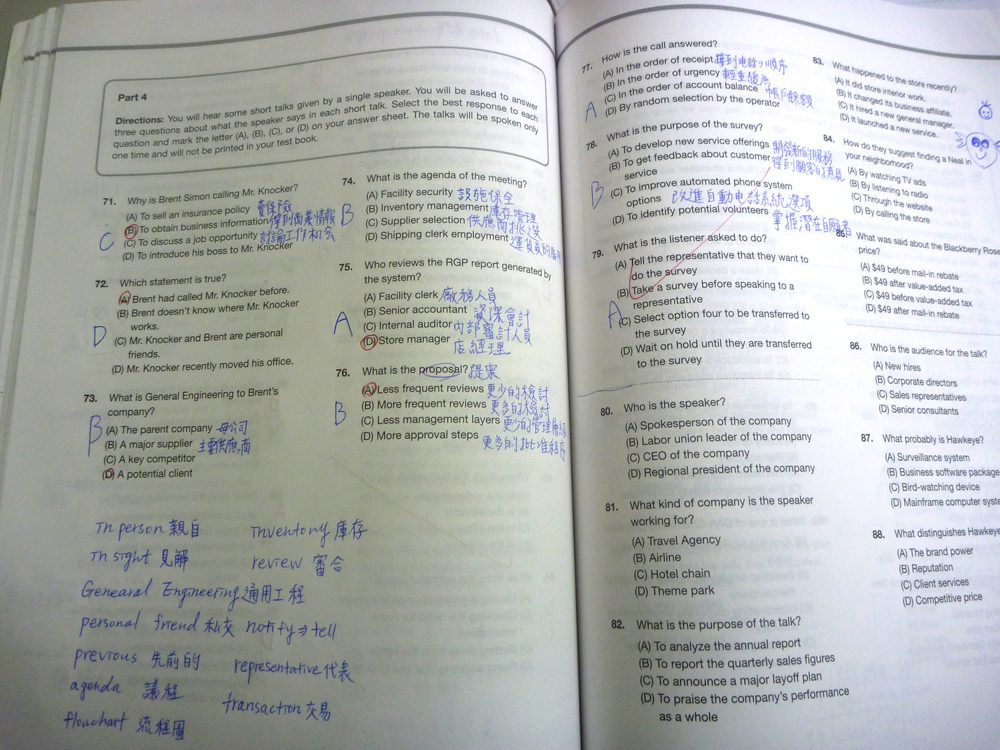 Part 4
Directions: You will hear some short talks given by a single speaker. You will be asked to answer
three questions about what the speaker says in each short talk. Select the best response to each
question and mark the letter (A), (B), (C), or (D) on your answer sheet. The talks will be spoken only
one time and will not be printed in your test book.
71. Why is Brent Simon calling Mr. Knocker?
(A) To sell an insurance policy 賣保險
(B) To obtain business information 得到商業情報
C (C) To discuss a job opportunity 討論工作机会
(D) To introduce his boss to Mr. Knocker
72. Which statement is true?
(A) Brent had called Mr. Knocker before.
(B) Brent doesn't know where Mr. Knocker
works.
D (C) Mr. Knocker and Brent are personal
friends.
(D) Mr. Knocker recently moved his office.
73. What is General Engineering to Brent's
company?
B (A) The parent company 母公司
(B) A major supplier 主要供應商
(C) A key competitor
(D) A potential client
In person 親自
In sight 見解
Genearal Engineering 通用工程
personal friend 私交
previous 先前的
agenda 議程
flowchart 流程圖
Inventony 庫存
review 審合
notify ⇒ tell
representative 代表
transaction 交易
74. What is the agenda of the meeting?
(A) Facility security 設施保全
B (B) Inventory management 庫存管理
(C) Supplier selection 供應商挑選
(D) Shipping clerk employment
75. Who reviews the RGP report generated by
the system?
(A) Facility clerk 廠務人員
A (B) Senior accountant 資深會計
(C) Internal auditor 內部審計人員
(D) Store manager 店經理
76. What is the proposal? 提案
(A) Less frequent reviews 更少的檢討
B (B) More frequent reviews 更多的檢討
(C) Less management layers 更少的管理層級
(D) More approval steps 更多的批准程序
77. How is the call answered?
(A) In the order of receipt 接到電話順序
(B) In the order of urgency
A (C) In the order of account balance 帳戶餘額
(D) By random selection by the operator
78. What is the purpose of the survey?
(A) To develop new service offerings 開發新的服務
(B) To get feedback about customer 得到顧客的意見
service
B (C) To improve automated phone system
options 改進自動电話系統選項
(D) To identify potential volunteers 掌握潛在自願者
79. What is the listener asked to do?
(A) Tell the representative that they want to
do the survey
(B) Take a survey before speaking to a
representative
A (C) Select option four to be transferred to
the survey
(D) Wait on hold until they are transferred
to the survey
80. Who is the speaker?
(A) Spokesperson of the company
(B) Labor union leader of the company
(C) CEO of the company
(D) Regional president of the company
81. What kind of company is the speaker
working for?
(A) Travel Agency
(B) Airline
(C) Hotel chain
(D) Theme park
82. What is the purpose of the talk?
(A) To analyze the annual report
(B) To report the quarterly sales figures
(C) To announce a major layoff plan
(D) To praise the company's performance
as a whole
83. What happened to the store recently?
(A) It did store interior work.
(B) It changed its business affiliate.
(C) It hired a new general manager.
(D) It launched a new service.
84. How do they suggest finding a Neal in
your neighborhood?
(A) By watching TV ads
(B) By listening to radio
(C) Through the website
(D) By calling the store
85. What was said about the Blackberry Rose
price?
(A) $49 before mail-in rebate
(B) $49 after value-added tax
(C) $49 before value-added tax
(D) $49 after mail-in rebate
86. Who is the audience for the talk?
(A) New hires
(B) Corporate directors
(C) Sales representatives
(D) Senior consultants
87. What probably is Hawkeye?
(A) Surveillance system
(B) Business software package
(C) Bird-watching device
(D) Mainframe computer
88. What distinguishes Hawkeye
(A) The brand power
(B) Reputation
(C) Client services
(D) Competitive price